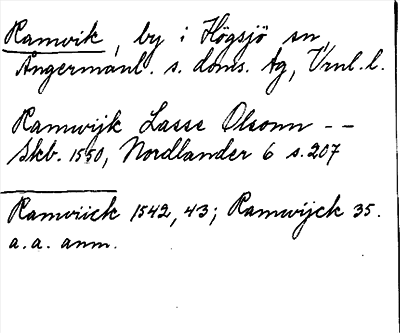 Ramvik, by i Högsjö sn,
Ångermanl. s. doms. tg, Vrnl. l.
Ramwijk Lasse Olsonn – –
Skb. 1550, Nordlander 6 s. 207
Ramwiick 1542, 43; Ramwijck 35.
a. a. anm.